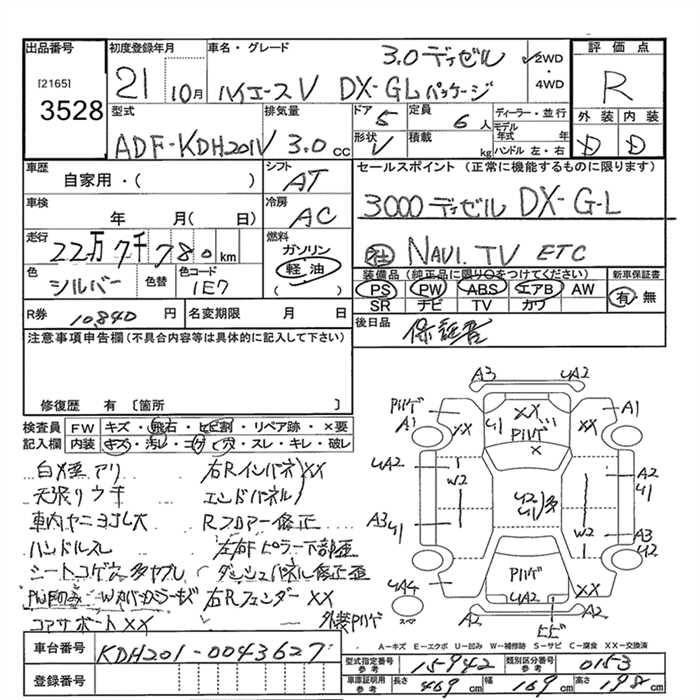 出品番号
[2165]
3528
初度登録年月
21
10月
車名・グレード
3.0ディゼル
ハイエースV DX-GLパッケージ
✓2WD
・4WD
評価点
R
外装 内装
D D
型式
ADF-KDH201V
排気量
3.0 cc
ドア 5
定員 6人
形状 V
積載 kg
ディーラー・並行
モデル年式 年
ハンドル 左・右
車歴
自家用・( )
シフト
AT
車検
年 月( 日)
冷房
AC
走行
22万7千780km
燃料
ガソリン
軽油
( )
色
シルバー
色替
色コード
1E7
R券 10,840 円
名変期限 月 日
セールスポイント(正常に機能するものに限ります)
3000ディゼル DX-G-L
社 NAVI. TV ETC
装備品(純正品に限り○をつけてください)
PS PW ABS エアB AW
SR ナビ TV カワ
新車保証書
有・無
後日品
保証書
注意事項申告欄(不具合内容等は具体的に記入して下さい)
修復歴 有〔箇所 〕
検査員記入欄
FW キズ・飛石・ヒビ割・リペア跡・×要
内装 キズ・汚レ・コゲ・穴・スレ・キレ・破レ
アリ 右RインパネXX
天張リウキ エンドパネル
車内ヤニヨゴレ大 Rフロアー修正
ハンドルスレ 左右Fピラー下部歪
シートコゲ穴多ヤブレ ダッシュパネル修正歪
右RフェンダーXX
コアサポートXX 外装PUゲ
A3 4A2
PUゲ
A1
XX
XX
U1
PUゲ
×
XX
A1
4A2
W2
A2
U1
U2
U1
多
A3
U1
W2
A3
U2
PUゲ
4A2
4A4
スペア
XX
A2
A2
ヒビ
A-キズ E-エクボ U-凹み W-補修跡 S-サビ C-腐食 XX-交換済
車台番号
KDH201-0043627
登録番号
型式指定番号 参考 15942
類別区分番号 参考 0153
車庫証明用 参考
長さ 469 cm
幅 169 cm
高さ 198 cm